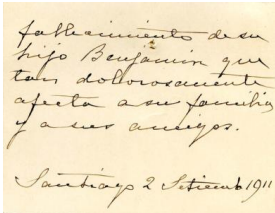 fallecimiento de su
hijo Benjamin que
tan dolorosamente
afecta a su familia
y a sus amigos.
Santiago 2 Setiemb 1911